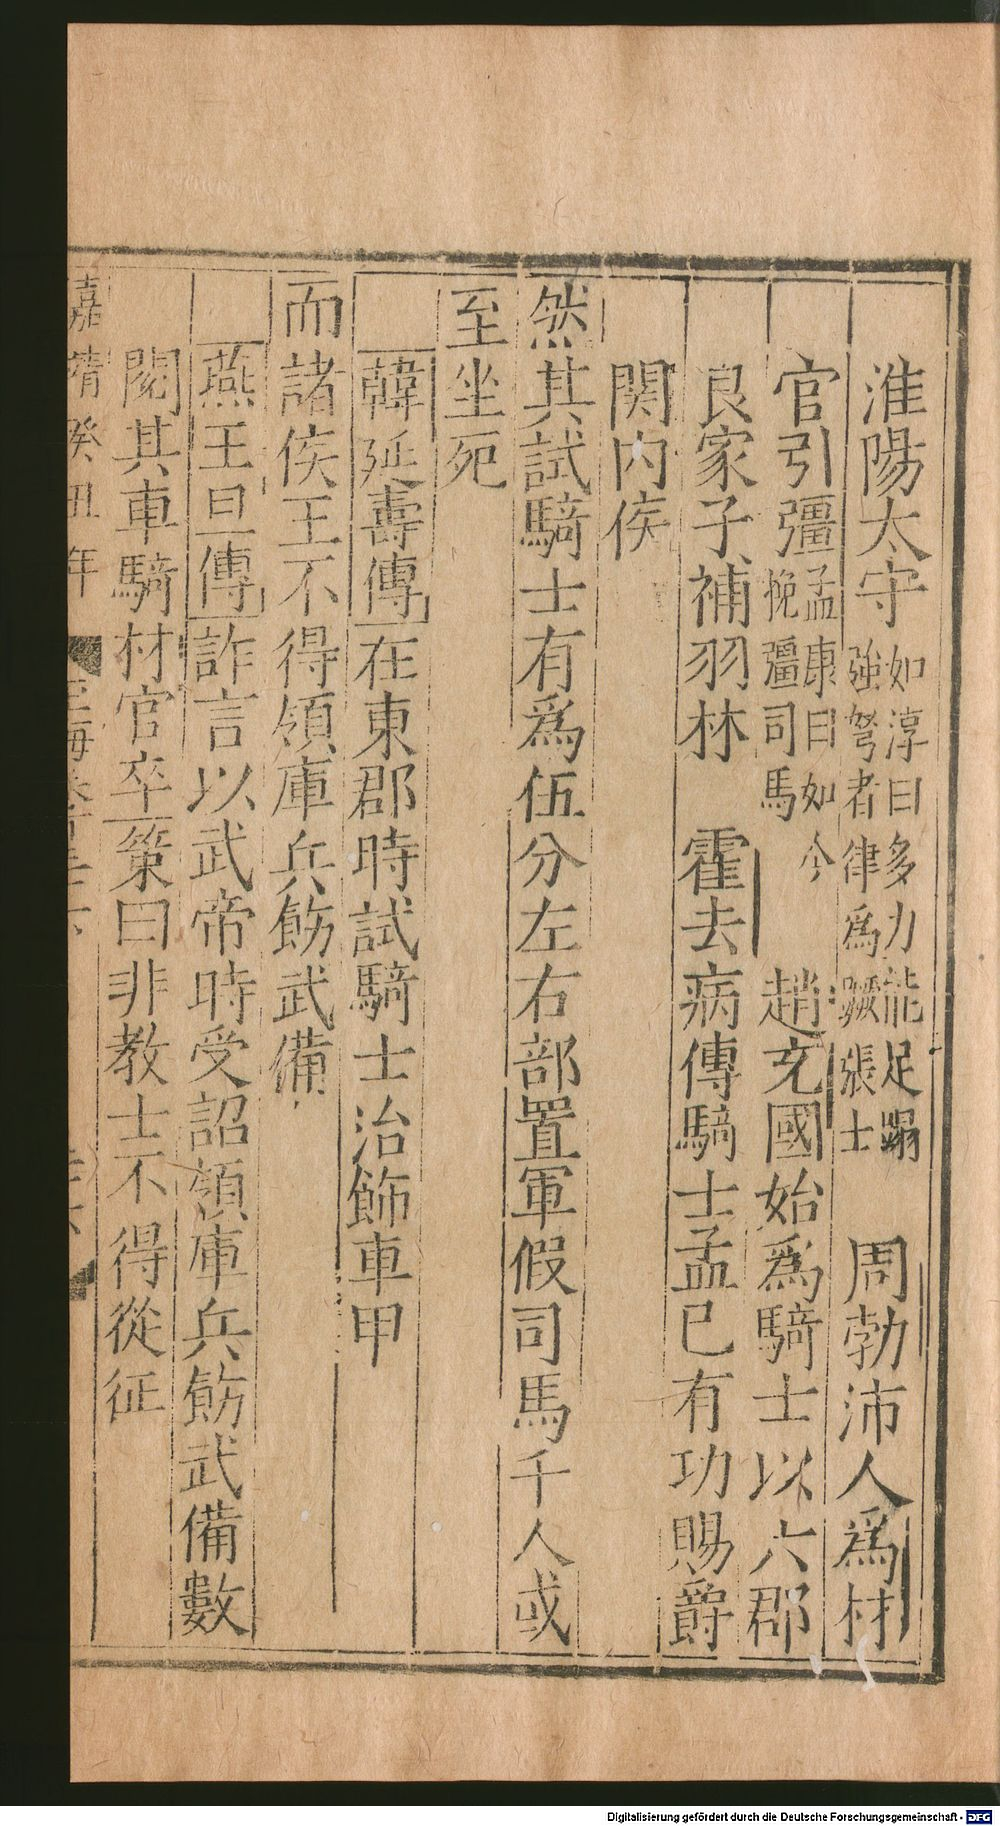 淮陽太守如淳曰多力能足蹋強弩者律爲蹶張士 周勃沛人爲材
官引彊孟康曰如今挽彊司馬 趙充國始爲騎士以六郡
良家子補羽林 霍去病傳騎士孟已有功賜爵
関内侯
然其試騎士有爲伍分左右部置軍假司馬千人或
至坐死
韓延壽傳在東郡時試騎士治飾車甲
而諸侯王不得領庫兵飭武備
燕王旦傳詐言以武帝時受詔領庫兵飭武備數
閱其車騎材官卒策曰非教士不得從征
嘉靖癸丑年
Digitalisierung gefördert durch die Deutsche Forschungsgemeinschaft - DFG